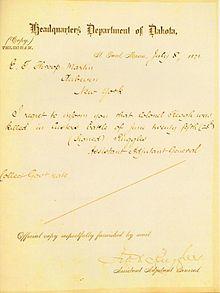 Headquarters Department of Dakota,
(Copy)
TELEGRAM.
St. Paul, Minn., July 8, 187
E. T. Throop Martin
Auburn
New York
I regret to inform you that Colonel was
killed in Custer's battle of June twenty fifth (25)
(signed) Ruggles
Assistant Adjutant General
Collect Gov't rate
Official copy respectfully furnished by mail
Assistant Adjutant General